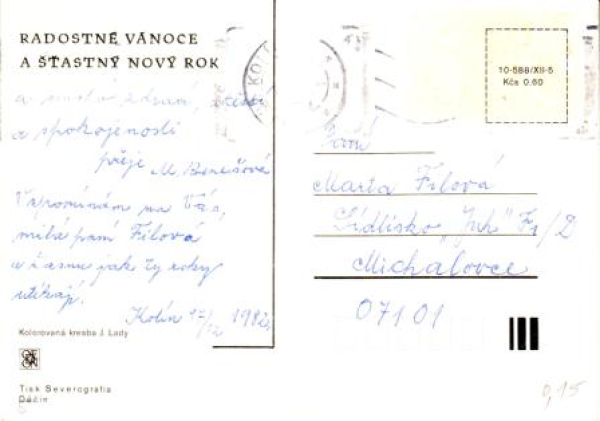 RADOSTNÉ VÁNOCE
A ŠŤASTNÝ NOVÝ ROK
a mnoho zdraví, štěstí
a spokojenosti
přeje M. Benešová
Vzpomínám na Vás,
milá paní Filová
a žasnu jak ty roky
utíkají.
Kolín 17/12 1982
Kolorovaná kresba J. Lady
Tisk Severografia
Děčín
KOLÍN
10-588/XII-5
Kčs 0.60
Paní
Marta Filová
Sídlisko „Juh"
Michalovce
071 01
0,15